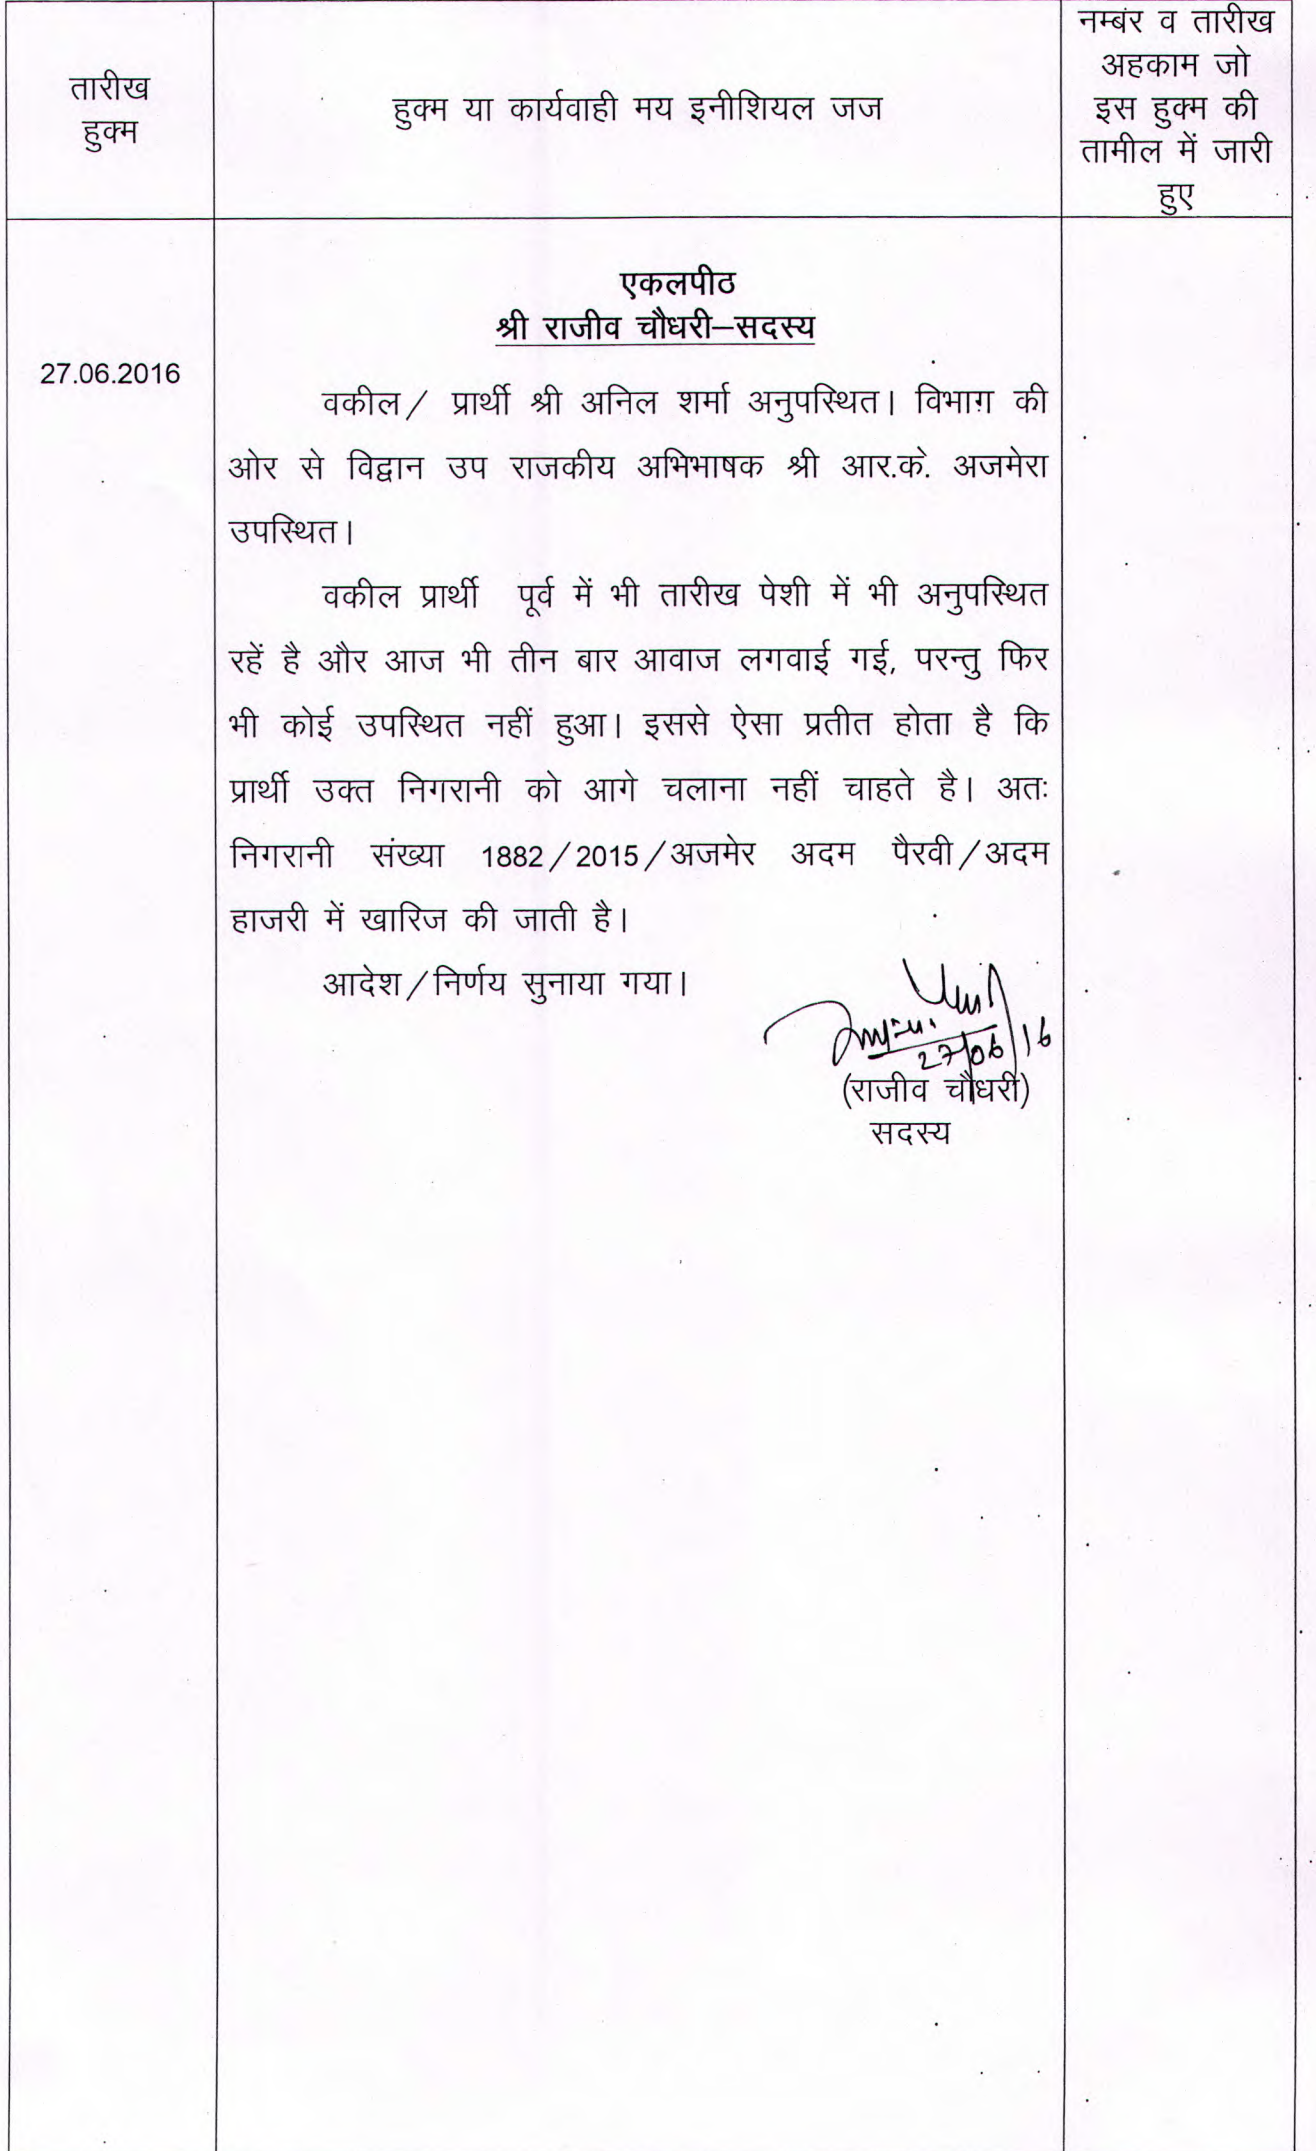 तारीख
हुक्म
हुक्म या कार्यवाही मय इनीशियल जज
नम्बर व तारीख
अहकाम जो
इस हुक्म की
तामील में जारी
हुए
एकलपीठ
श्री राजीव चौधरी–सदस्य
27.06.2016
वकील/ प्रार्थी श्री अनिल शर्मा अनुपस्थित। विभाग की
ओर से विद्वान उप राजकीय अभिभाषक श्री आर.के. अजमेरा
उपस्थित।
वकील प्रार्थी पूर्व में भी तारीख पेशी में भी अनुपस्थित
रहें है और आज भी तीन बार आवाज लगवाई गई, परन्तु फिर
भी कोई उपस्थित नहीं हुआ। इससे ऐसा प्रतीत होता है कि
प्रार्थी उक्त निगरानी को आगे चलाना नहीं चाहते है। अतः
निगरानी संख्या 1882/2015/अजमेर अदम पैरवी/अदम
हाजरी में खारिज की जाती है।
आदेश/निर्णय सुनाया गया।
27/06/16
(राजीव चौधरी)
सदस्य